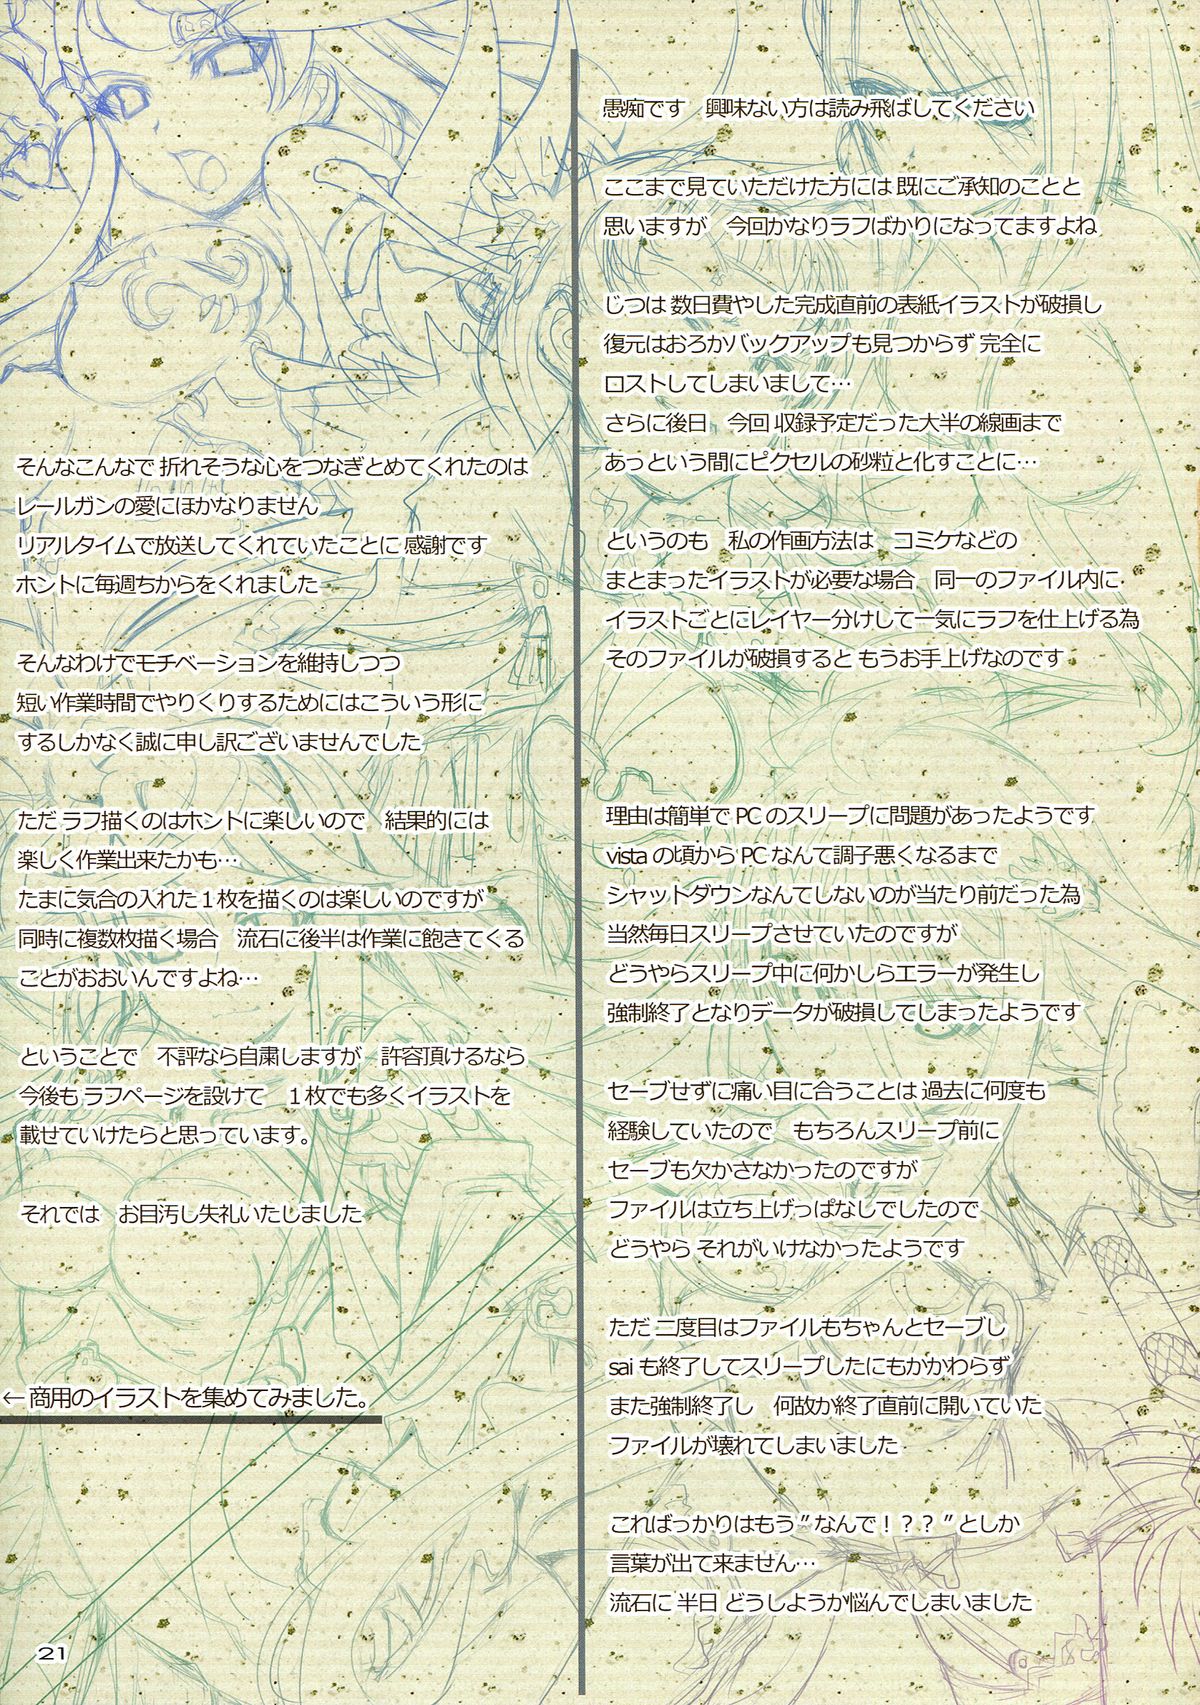 愚痴です　興味ない方は読み飛ばしてください
ここまで見ていただけた方には 既にご承知のことと
思いますが　今回かなりラフばかりになってますよね
じつは 数日費やした完成直前の表紙イラストが破損し
復元はおろかバックアップも見つからず 完全に
ロストしてしまいまして…
さらに後日　今回 収録予定だった大半の線画まで
あっという間にピクセルの砂粒と化すことに…
というのも　私の作画方法は　コミケなどの
まとまったイラストが必要な場合　同一のファイル内に
イラストごとにレイヤー分けして一気にラフを仕上げる為
そのファイルが破損すると もうお手上げなのです
理由は簡単で PC のスリープに問題があったようです
vista の頃から PC なんて調子悪くなるまで
シャットダウンなんてしないのが当たり前だった為
当然毎日スリープさせていたのですが
どうやらスリープ中に何かしらエラーが発生し
強制終了となりデータが破損してしまったようです
セーブせずに痛い目に合うことは 過去に何度も
経験していたので　もちろんスリープ前に
セーブも欠かさなかったのですが
ファイルは立ち上げっぱなしでしたので
どうやら それがいけなかったようです
ただ 二度目はファイルもちゃんとセーブし
sai も終了してスリープしたにもかかわらず
また強制終了し　何故か終了直前に開いていた
ファイルが壊れてしまいました
こればっかりはもう”なんで！？？”としか
言葉が出て来ません…
流石に 半日 どうしようか悩んでしまいました
そんなこんなで 折れそうな心をつなぎとめてくれたのは
レールガンの愛にほかなりません
リアルタイムで放送してくれていたことに 感謝です
ホントに毎週ちからをくれました
そんなわけでモチベーションを維持しつつ
短い作業時間でやりくりするためにはこういう形に
するしかなく誠に申し訳ございませんでした
ただ ラフ描くのはホントに楽しいので　結果的には
楽しく作業出来たかも…
たまに気合の入れた１枚を描くのは楽しいのですが
同時に複数枚描く場合　流石に後半は作業に飽きてくる
ことがおおいんですよね…
ということで　不評なら自粛しますが　許容頂けるなら
今後も ラフページを設けて　１枚でも多くイラストを
載せていけたらと思っています。
それでは　お目汚し失礼いたしました
← 商用のイラストを集めてみました。
21